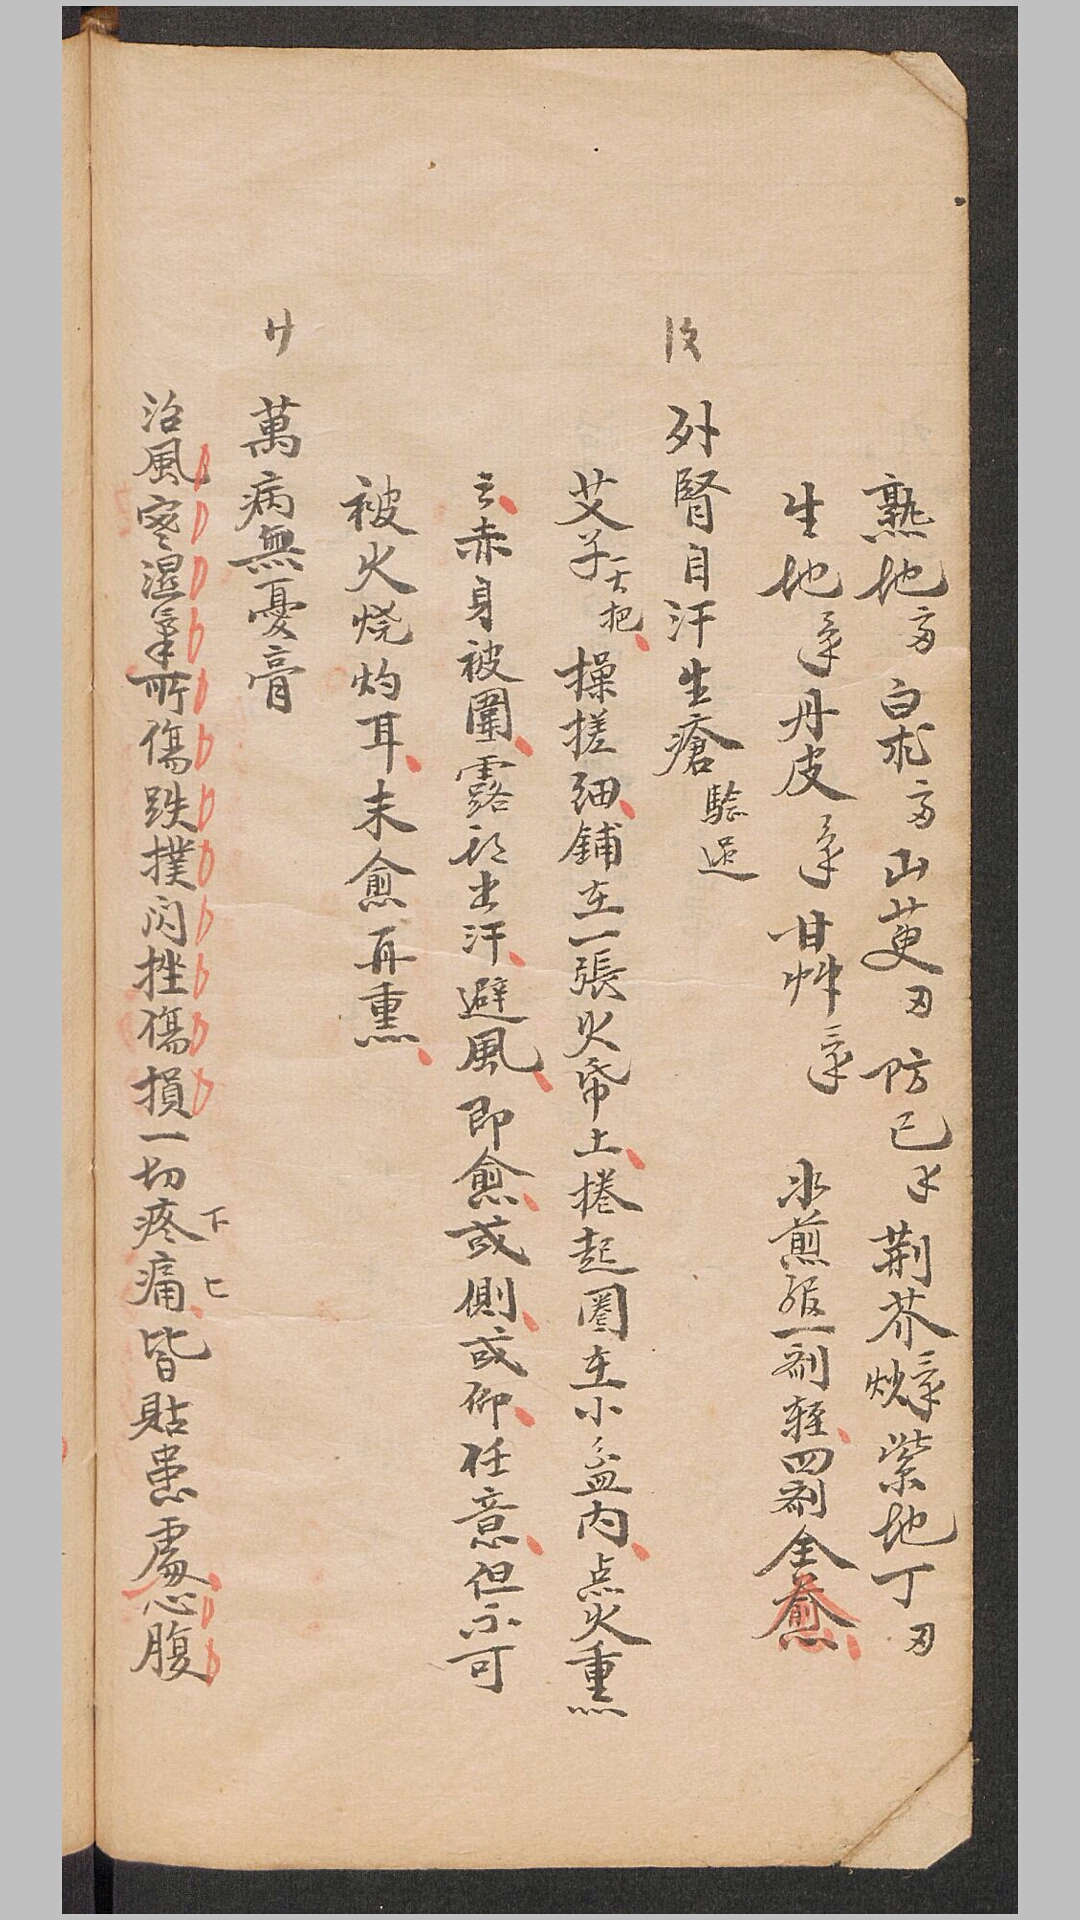 熟地 白朮 山萸 防已 荆芥炒 紫地丁
生地 丹皮 甘艸 水煎服一剂輕四剂全愈
外腎自汗生瘡 驗過
艾子一大把搓細鋪在一張火帋上捲起圈在小盆内点火熏
云赤身被圍露 出汗避風即愈或側或仰任意但不可
被火烧灼耳未愈再熏
廾
萬病無憂膏
治風寒湿氣所傷跌撲闪挫傷損一切疼痛皆貼患處心腹